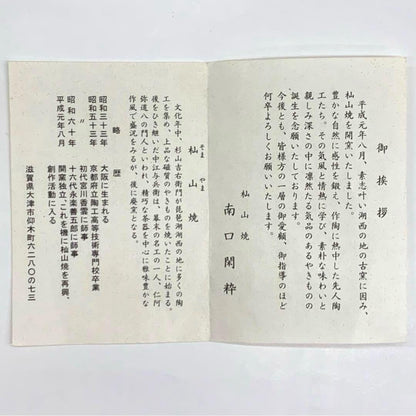 御挨拶
平成元年八月、素志叶い湖西の地の古窯に因み、
杣山焼を開窯いたしました。
豊かな自然に感性を鍛え、作陶に熱中した先人陶
工たち。その気風と情熱に学び、素朴な味わいと
親しみ深さの中に凛然たる気品のあるやきものの
誕生を念願いたしております。
今後とも、皆様方の一層の御愛顧、御指導のほど
何卒よろしくお願いいたします。
杣山焼
南口閑粋
そま やま
杣山焼
文化年中、杉山吉右衛門が琵琶湖西の地に多くの陶
工を集め、上品な磁質のやきものを焼いたことに始まる。
後をひき継いだ中江与兵衛は、幕末の名工の一人、仁阿
弥道八の門人といわれ、精巧な茶器を中心に雅味豊かな
作風で盛況をみるが、後に廃窯となる。
略歴
昭和三十三年 大阪に生まれる
昭和五十三年 京都府立陶工高等技術専門校卒業
〃 初代宮川香雲に師事
昭和六十年 十六代永楽善五郎に師事
平成元年八月 開窯独立。これを機に杣山焼を再興、
創作活動に入る
滋賀県大津市仰木町六二八〇の七三